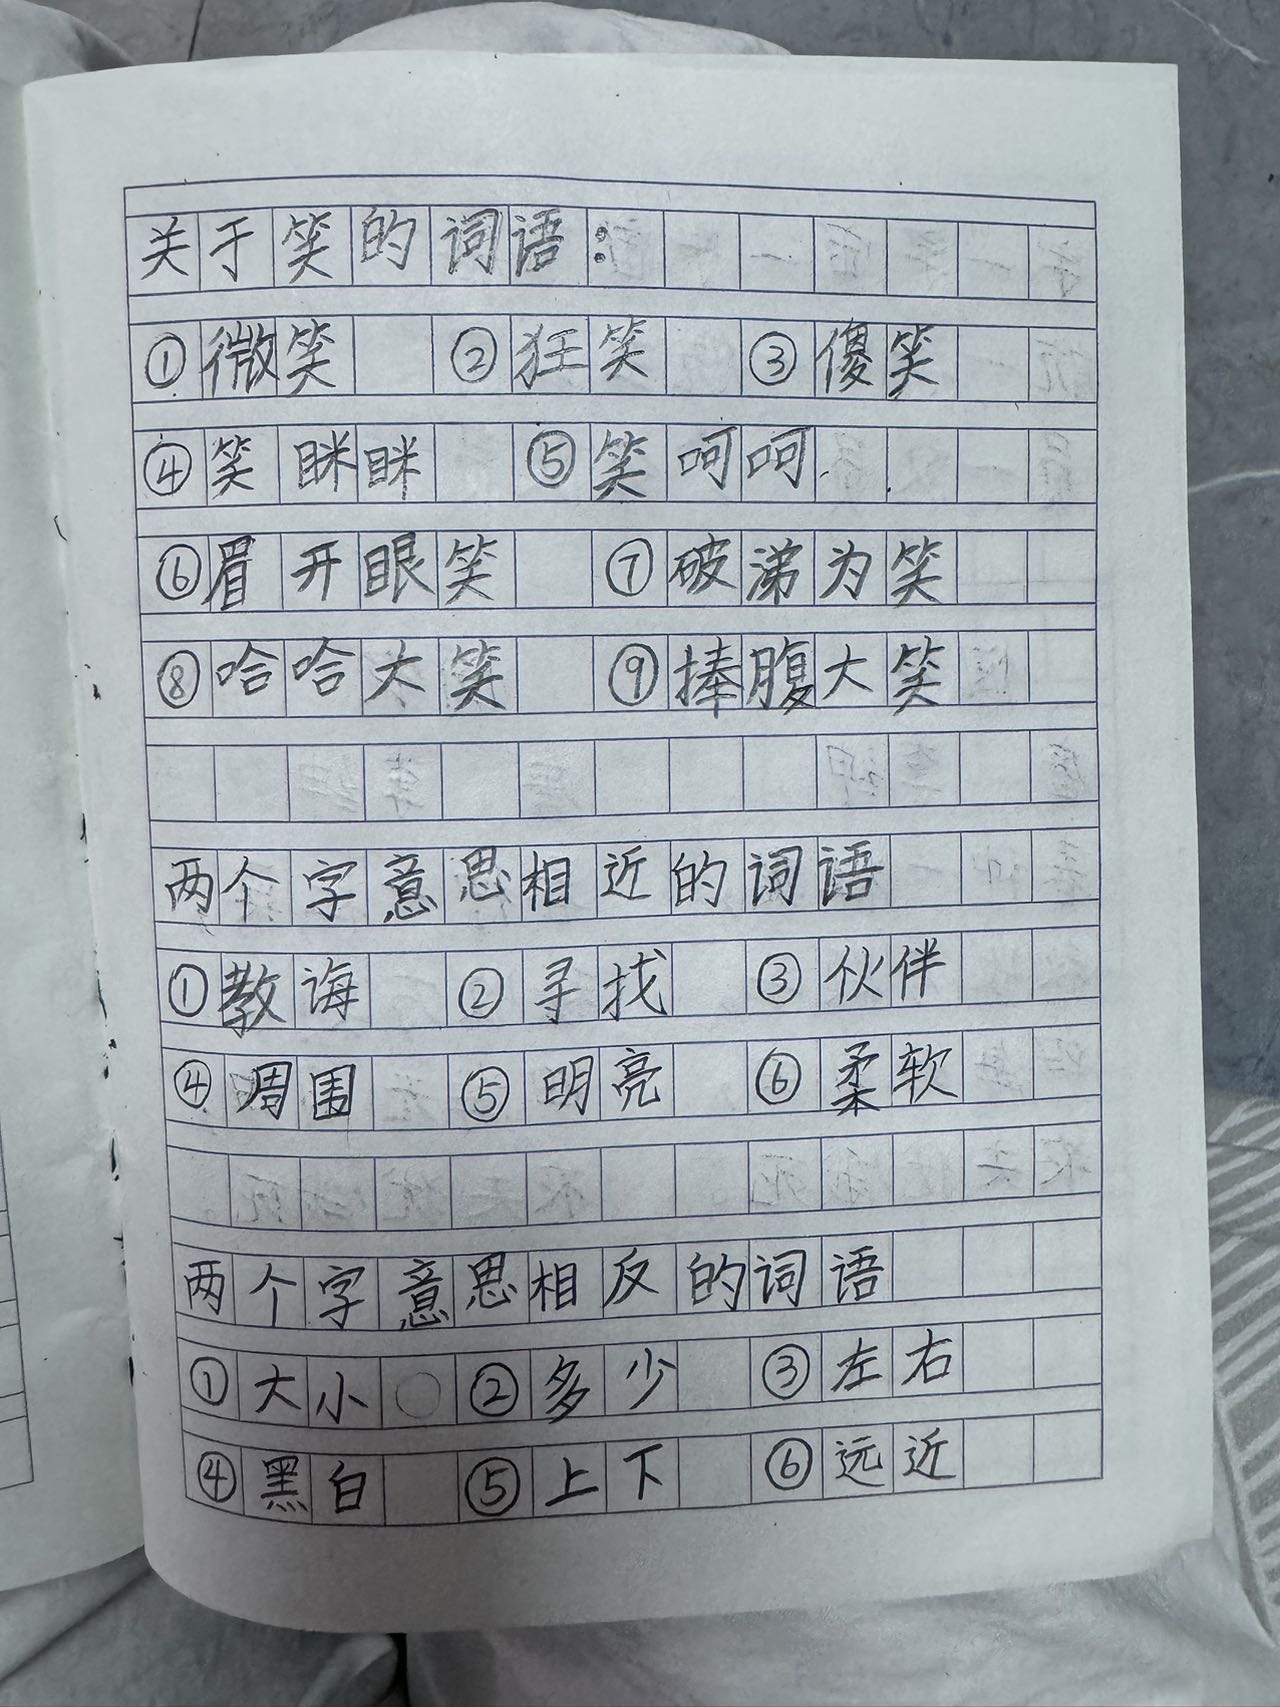 关于笑的词语：
①微笑 ②狂笑 ③傻笑
④笑眯眯 ⑤笑呵呵
⑥眉开眼笑 ⑦破涕为笑
⑧哈哈大笑 ⑨捧腹大笑
两个字意思相近的词语
①教诲 ②寻找 ③伙伴
④周围 ⑤明亮 ⑥柔软
两个字意思相反的词语
①大小 ②多少 ③左右
④黑白 ⑤上下 ⑥远近